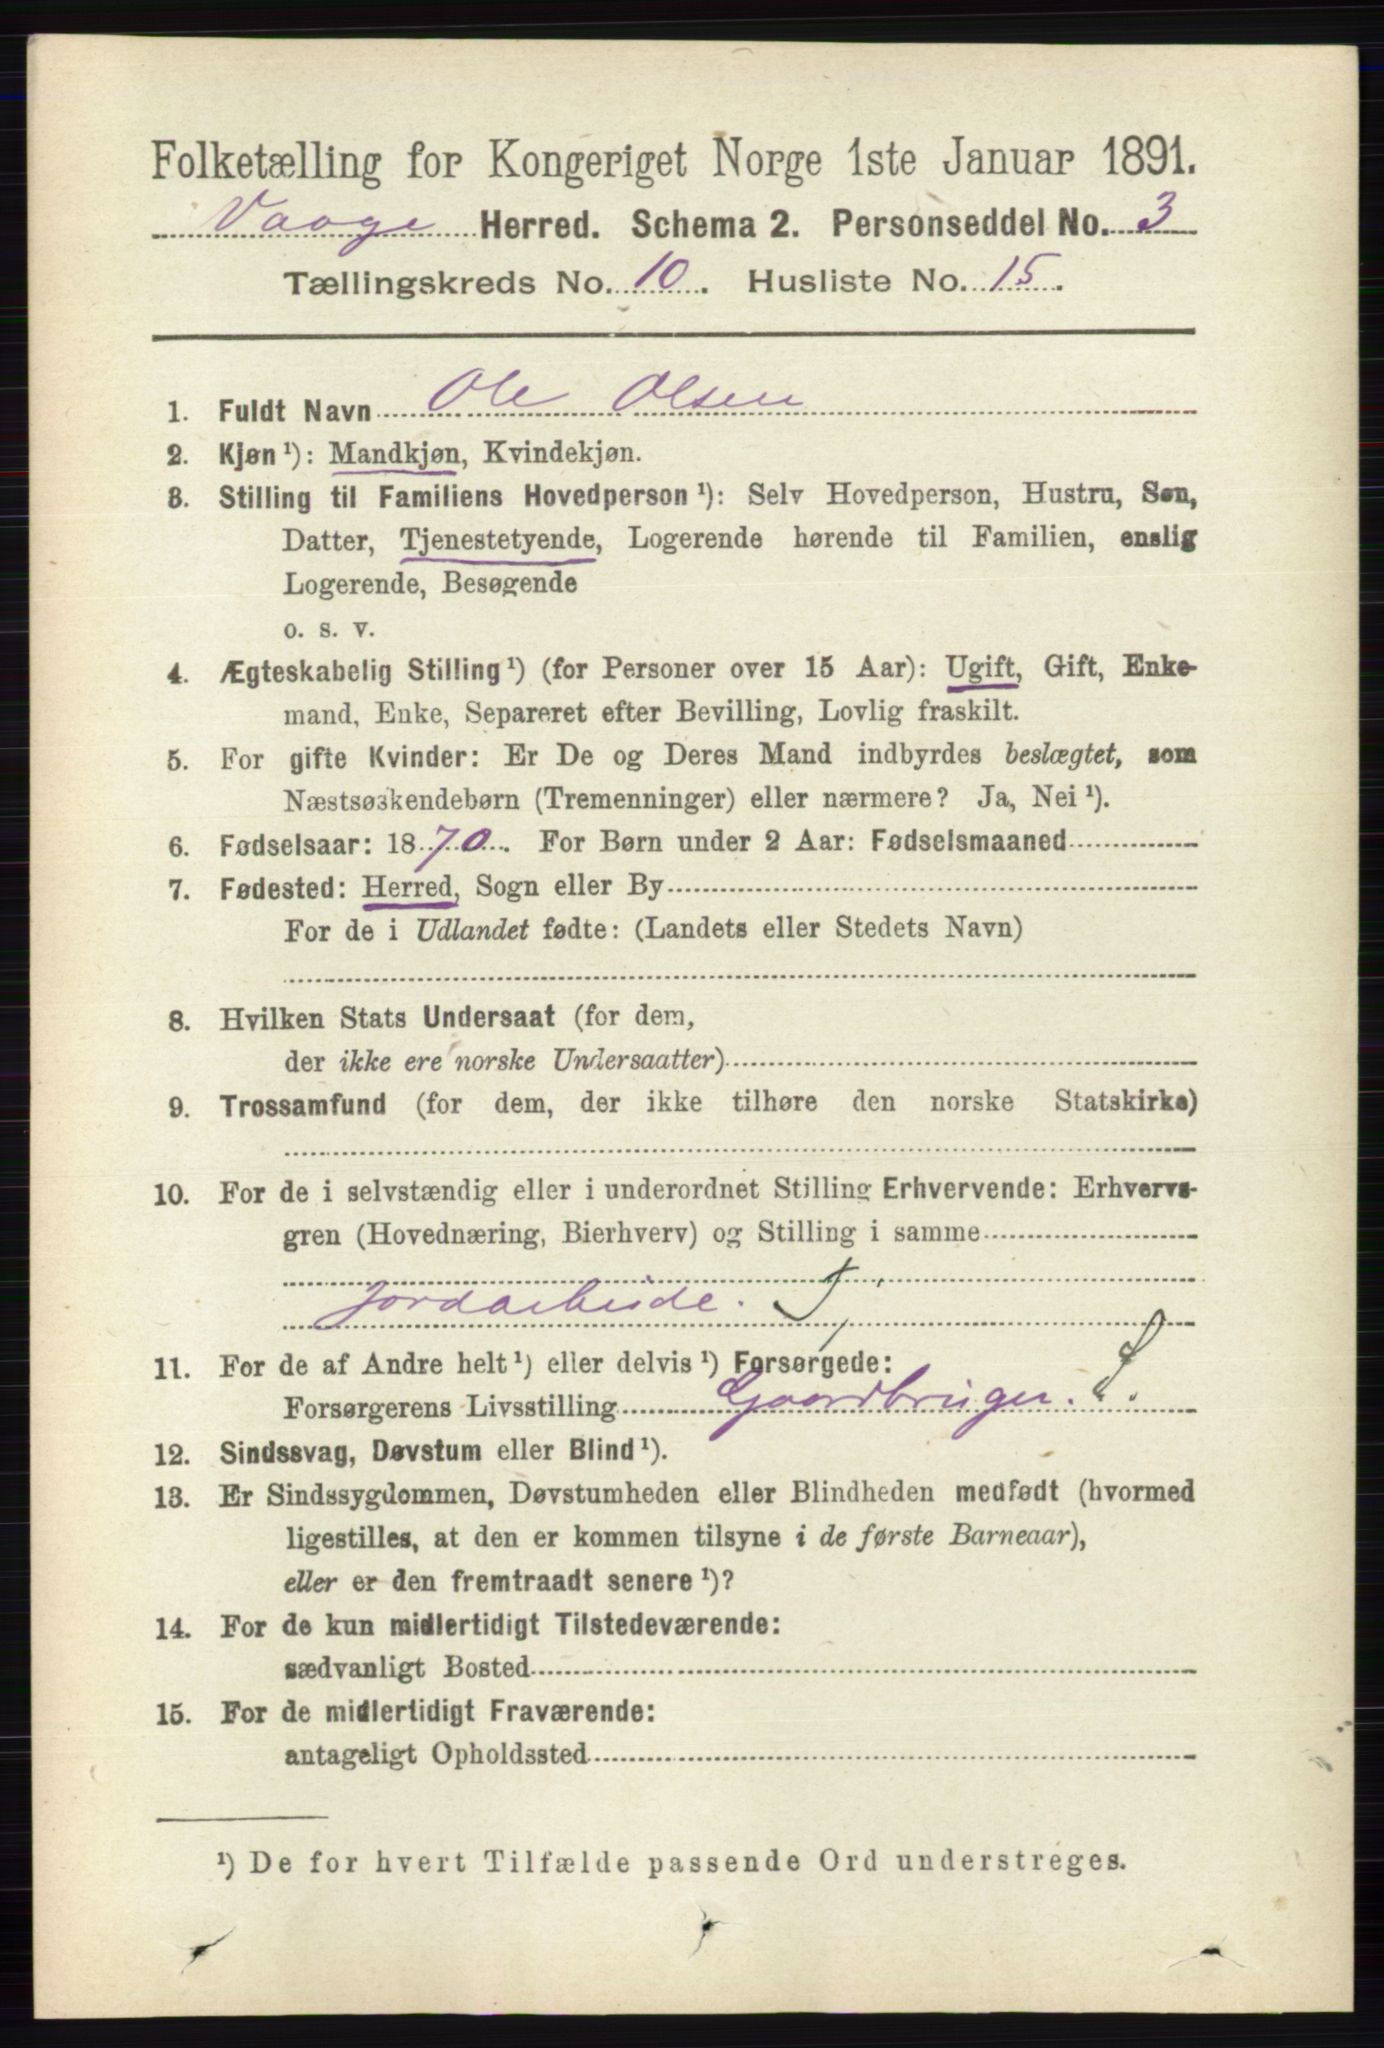 Folketælling for Kongeriget Norge 1ste Januar 1891.
Vaage Herred. Schema 2. Personseddel No. 3
Tællingskreds No. 10. Husliste No. 15.
1. Fuldt Navn Ole Olsen
2. Kjøn ¹): Mandkjøn, Kvindekjøn.
3. Stilling til Familiens Hovedperson ¹): Selv Hovedperson, Hustru, Søn,
Datter, Tjenestetyende, Logerende hørende til Familien, enslig
Logerende, Besøgende
o. s. v.
4. Ægteskabelig Stilling ¹) (for Personer over 15 Aar): Ugift, Gift, Enke-
mand, Enke, Separeret efter Bevilling, Lovlig fraskilt.
5. For gifte Kvinder: Er De og Deres Mand indbyrdes beslægtet, som
Næstsøskendebørn (Tremenninger) eller nærmere? Ja, Nei ¹).
6. Fødselsaar: 1870. For Børn under 2 Aar: Fødselsmaaned
7. Fødested: Herred, Sogn eller By
For de i Udlandet fødte: (Landets eller Stedets Navn)
8. Hvilken Stats Undersaat (for dem,
der ikke ere norske Undersaatter)
9. Trossamfund (for dem, der ikke tilhøre den norske Statskirke)
10. For de i selvstændig eller i underordnet Stilling Erhvervende: Erhvervs-
gren (Hovednæring, Bierhverv) og Stilling i samme
Jordarbeide.
11. For de af Andre helt ¹) eller delvis ¹) Forsørgede:
Forsørgerens Livsstilling Gaardbruger. S.
12. Sindssvag, Døvstum eller Blind ¹).
13. Er Sindssygdommen, Døvstumheden eller Blindheden medfødt (hvormed
ligestilles, at den er kommen tilsyne i de første Barneaar),
eller er den fremtraadt senere ¹)?
14. For de kun midlertidigt Tilstedeværende:
sædvanligt Bosted
15. For de midlertidigt Fraværende:
antageligt Opholdssted
¹) De for hvert Tilfælde passende Ord understreges.